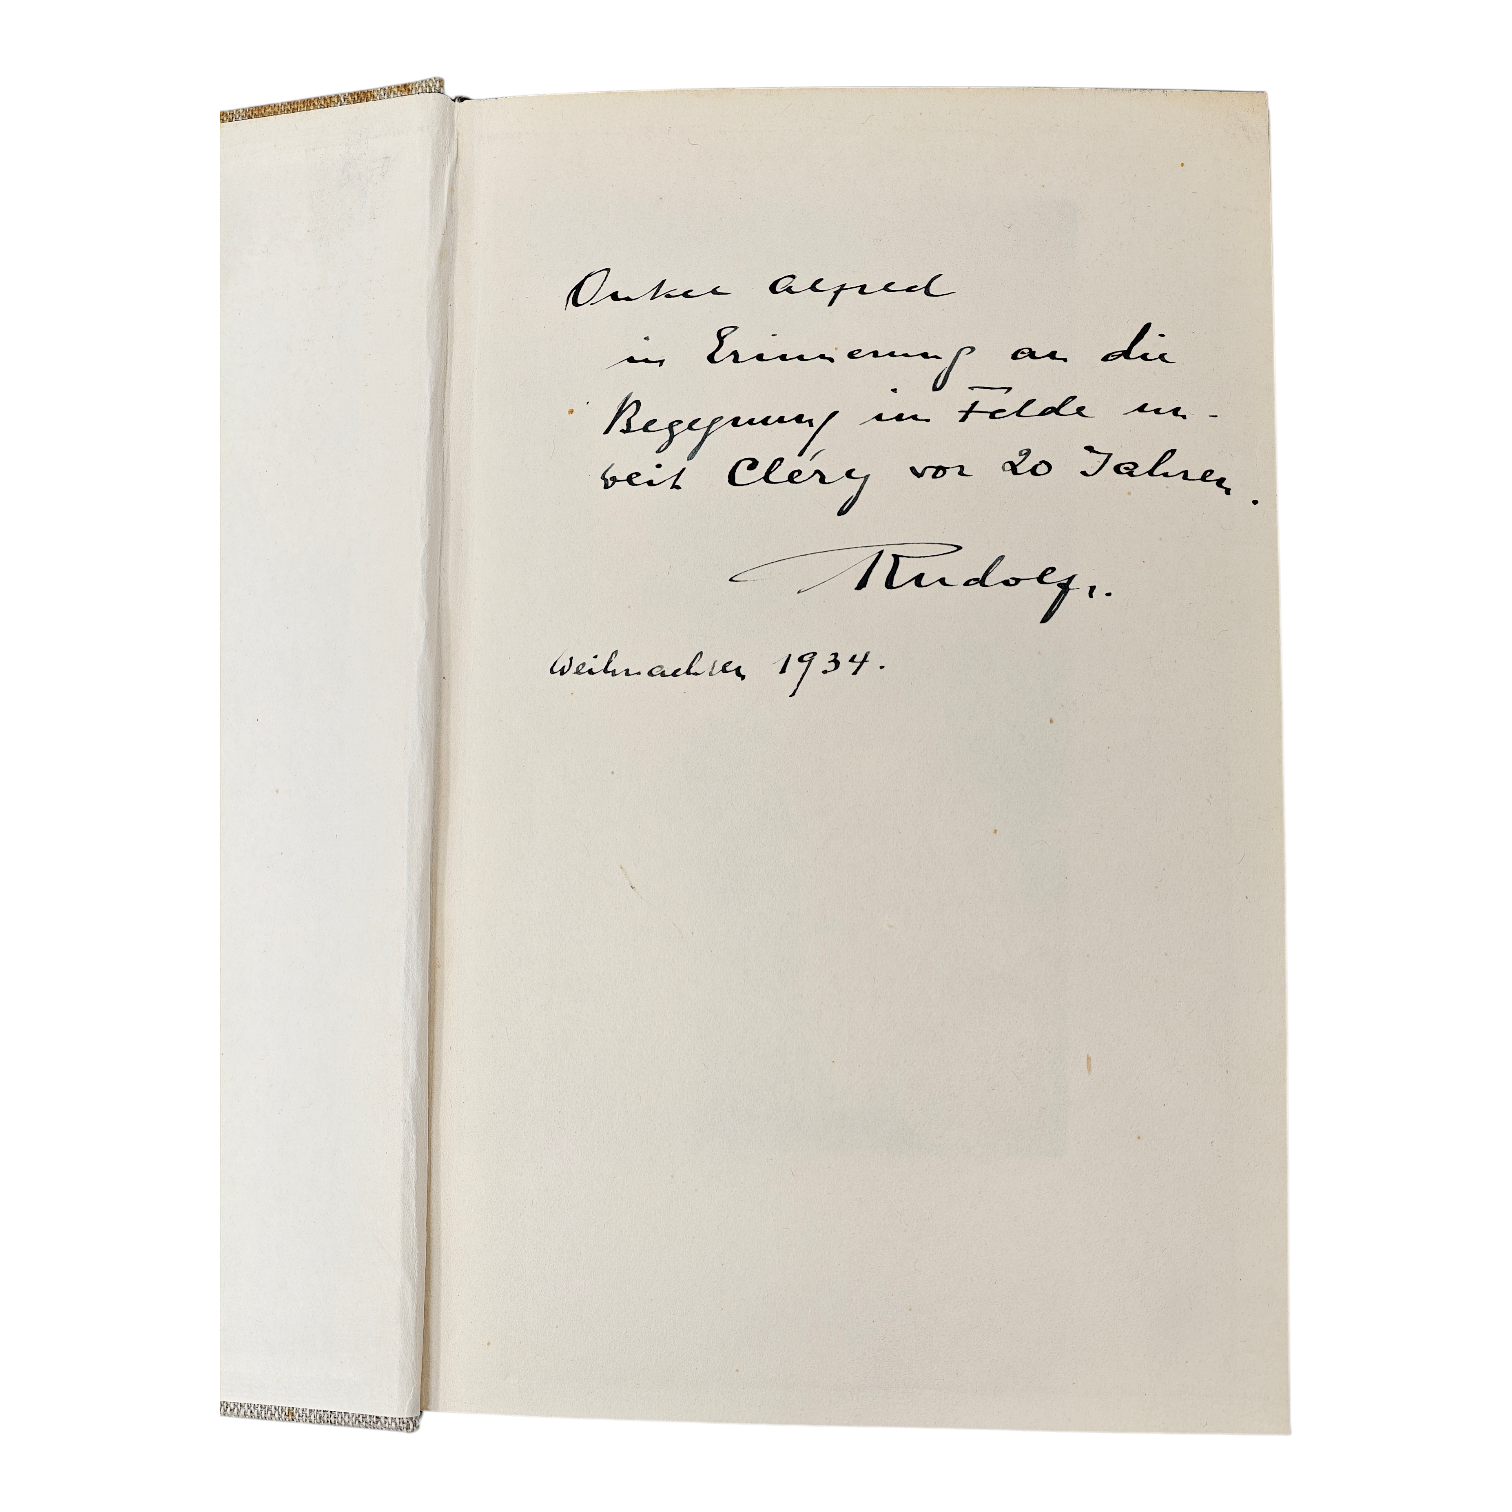 Onkel Alfred
in Erinnerung an die
Begegnung im Felde un-
weit Cléry vor 20 Jahren.
Rudolf.
Weihnachten 1934.